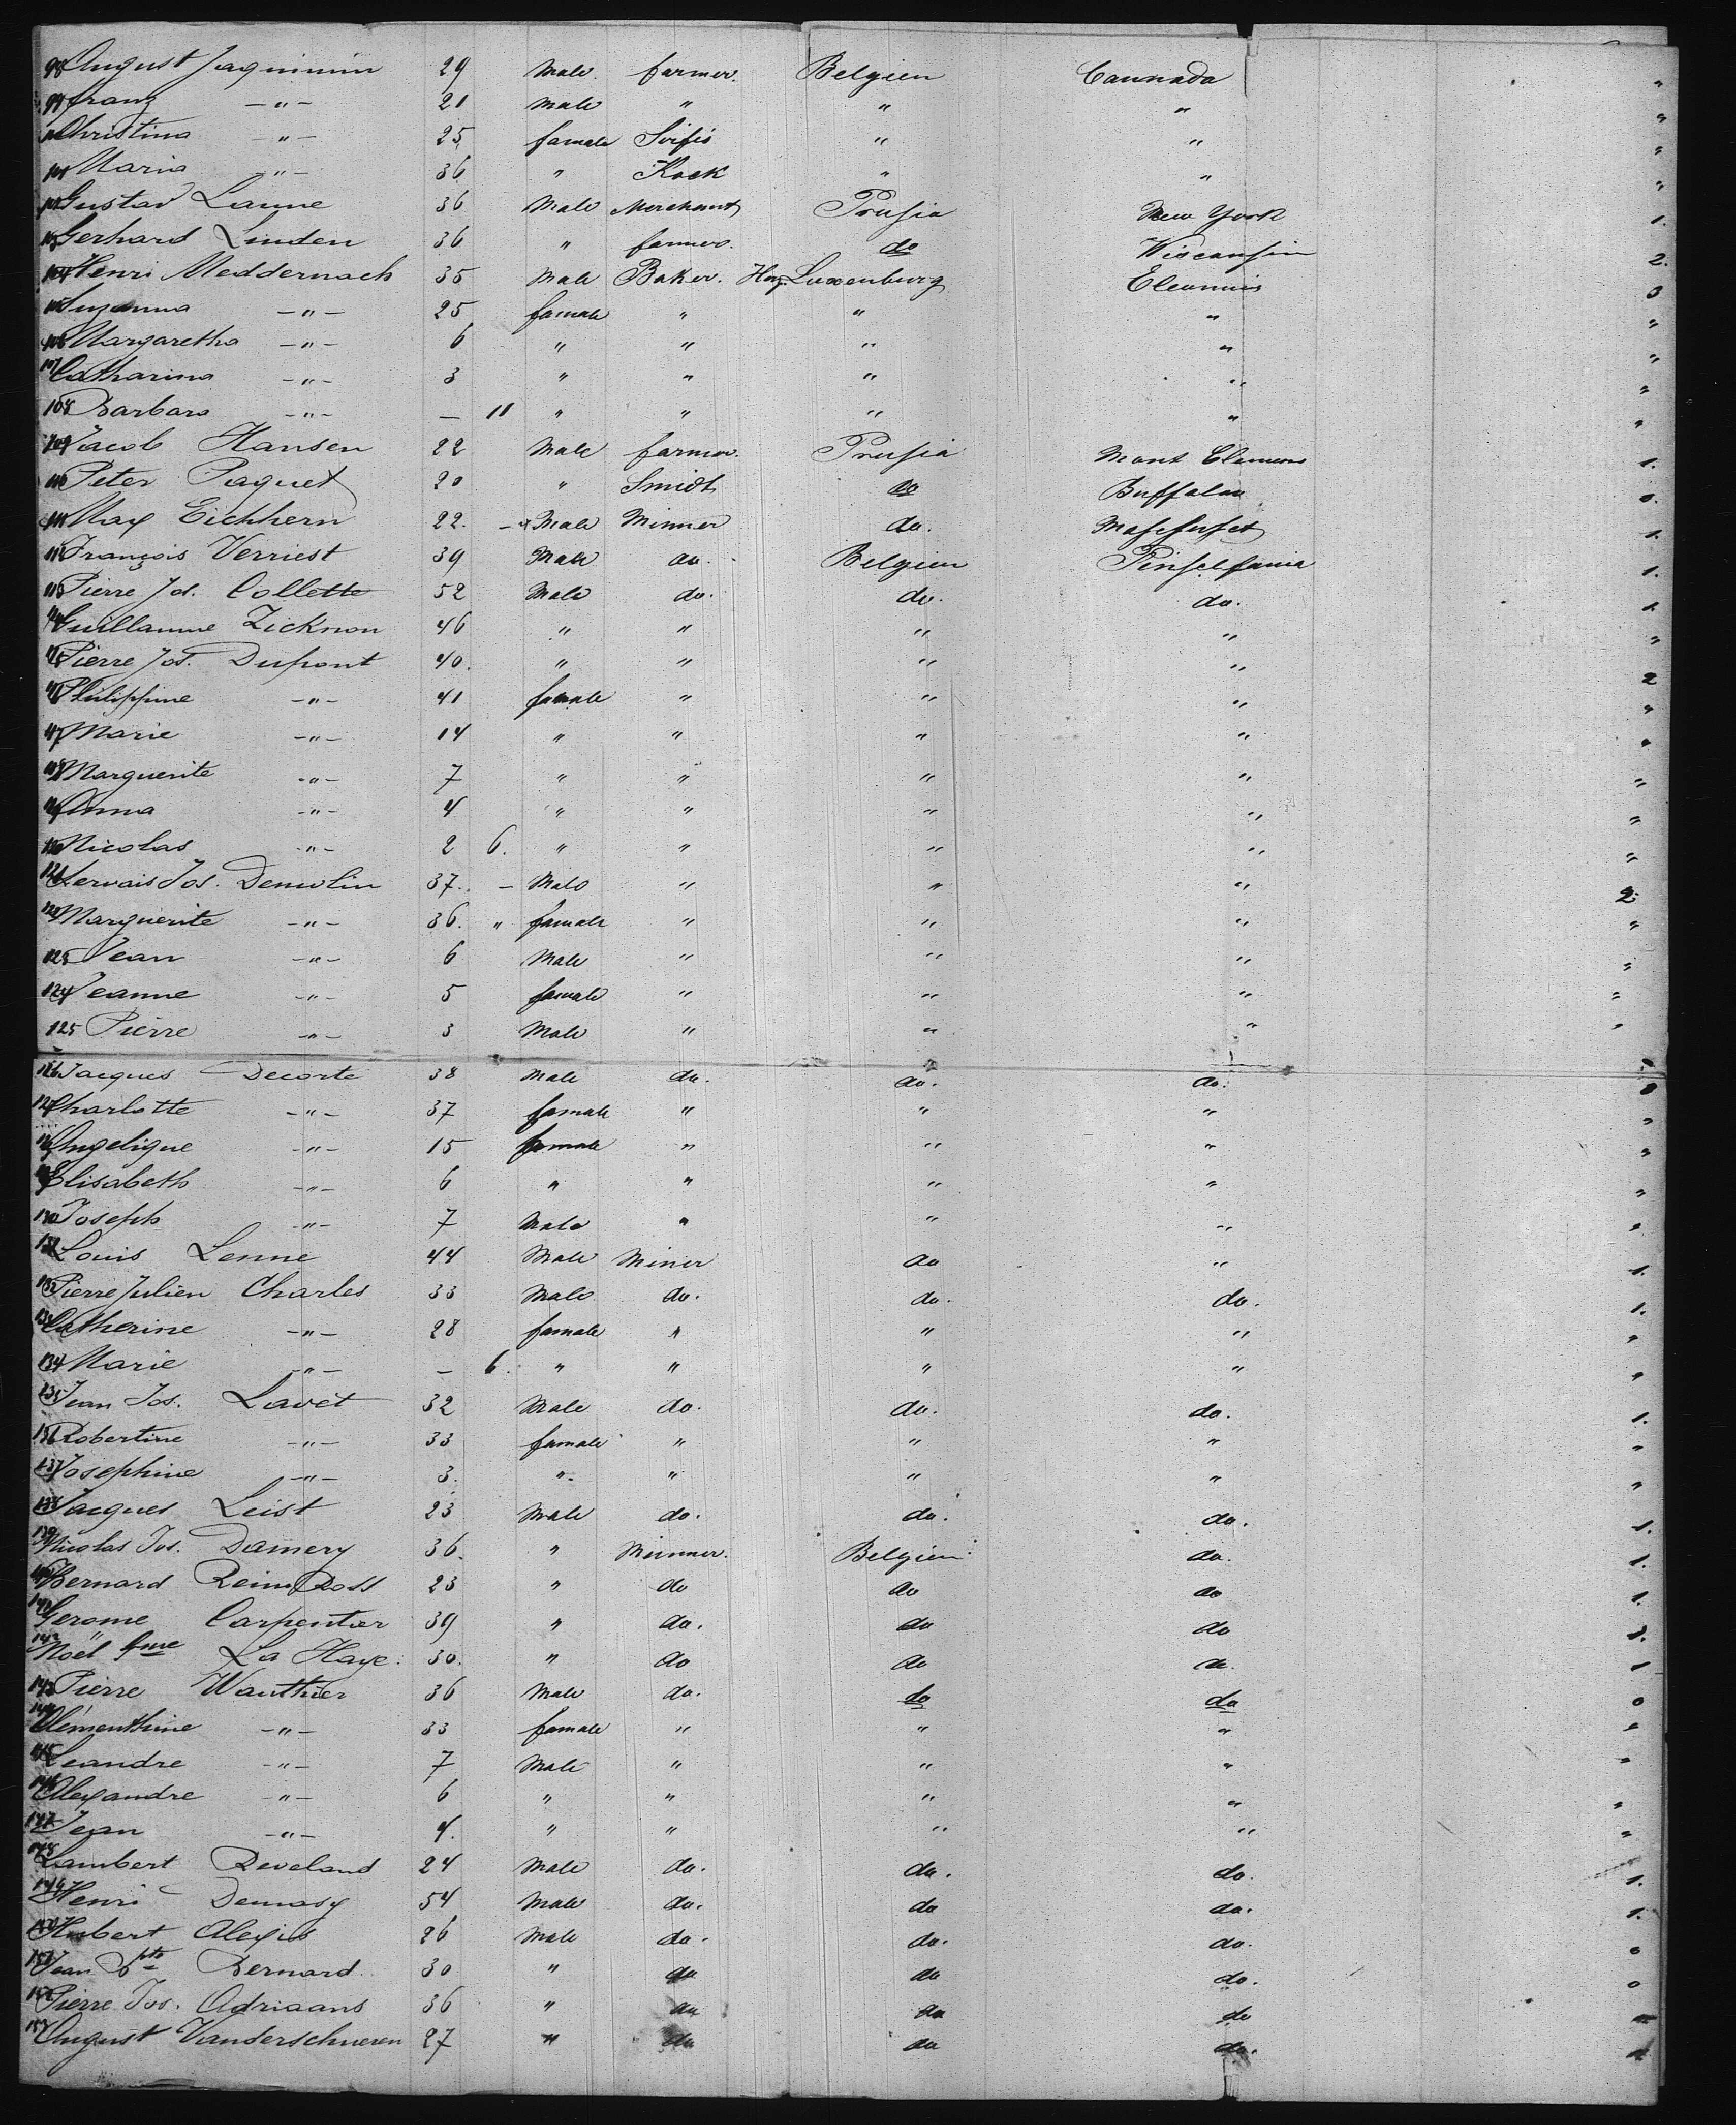 98 August Jaquimin 29 Male. farmer. Belgien Cannada "
99 franz —"— 21 Male " " " "
100 Christina —"— 25 famale " " "
101 Maria —"— 36 " Kock " " "
102 Gustav Lanne 36 Male Merchant Prusia New York 1.
103 Gerhard Linden 36 " farmer. do Wisconsin 2.
104 Henri Meddernach 35 Male Baker. Luxenburg 3
105 Suzanna —"— 25 famale " " " "
106 Margaretha —"— 6 " " " " "
107 Catharina —"— 3 " " " " "
108 Barbara —"— — 11 " " " " "
109 Jacob Hansen 22 Male farmer. Prusia Mont Clemens 1.
110 Peter Paquet 20 " Smidt do Buffalao 0.
111 May Eichhern 22. — Male Minner do. 1.
112 François Verriest 39 Male do. Belgien Pinselfania 1.
113 Pierre Jos. Collette 52 Male do. do. do. 1.
114 Guillaume Zicknon 46 " " " " "
115 Pierre Jos. Dupont 40. " " " " 2
116 Philippine —"— 41 famale " " " "
117 Marie —"— 14 " " " " "
118 Marguerite —"— 7 " " " " "
119 Anna —"— 4 " " " " "
120 Nicolas —"— 2 6. " " " " "
121 Servais Jos. Demolin 37. — Male " " " 2
122 Marguerite —"— 36. " famale " " " "
123 Jean —"— 6 Male " " " "
124 Jeanne —"— 5 famale " " " "
125 Pierre —"— 3 Male " " " "
126 Jacques Decorte 38 Male do. do. do.
127 Charlotte —"— 37 famale " " " "
128 Angelique —"— 15 famale " " " "
129 Elisabeth —"— 6 " " " " "
130 Joseph —"— 7 Male " " " "
131 Louis Lenne 44 Male Miner do " 1.
132 Pierre Julien Charles 33 Male do. do. do. 1.
133 Catherine —"— 28 famale " " " "
134 Marie —"— — 6. " " " " "
135 Jean Jos. Lavet 32 Male do. do. do. 1.
136 Robertine —"— 33 famale " " " "
137 Josephine —"— 3. " " " " "
138 Jacques Leist 23 Male do. do. do. 1.
139 Nicolas Jos. Damery 36. " Minner. Belgien do. 1.
140 Bernard 23 " do do do 1.
141 Gerome Carpentier 39 " do. do do 1.
142 Noël La Haye. 30. " do do do. 1
143 Pierre Wauthier 36 Male do. do do 0
144 Clémenthine —"— 33 famale " " " "
145 Leandre —"— 7 Male " " " "
146 Alexandre —"— 6 " " " " "
147 Jean —"— 4. " " " " "
148 Lambert Reveland 24 Male do. do. do. 1.
149 Henri Demasy 54 Male do. do do. 1.
150 Hubert Alexis 26 Male do. do. do. 0
151 Jean Bpte Bernard 30 " do do do. 0
152 Pierre Jos. Adriaans 36 " do do do
153 August Vanderschueren 27 " do do do.